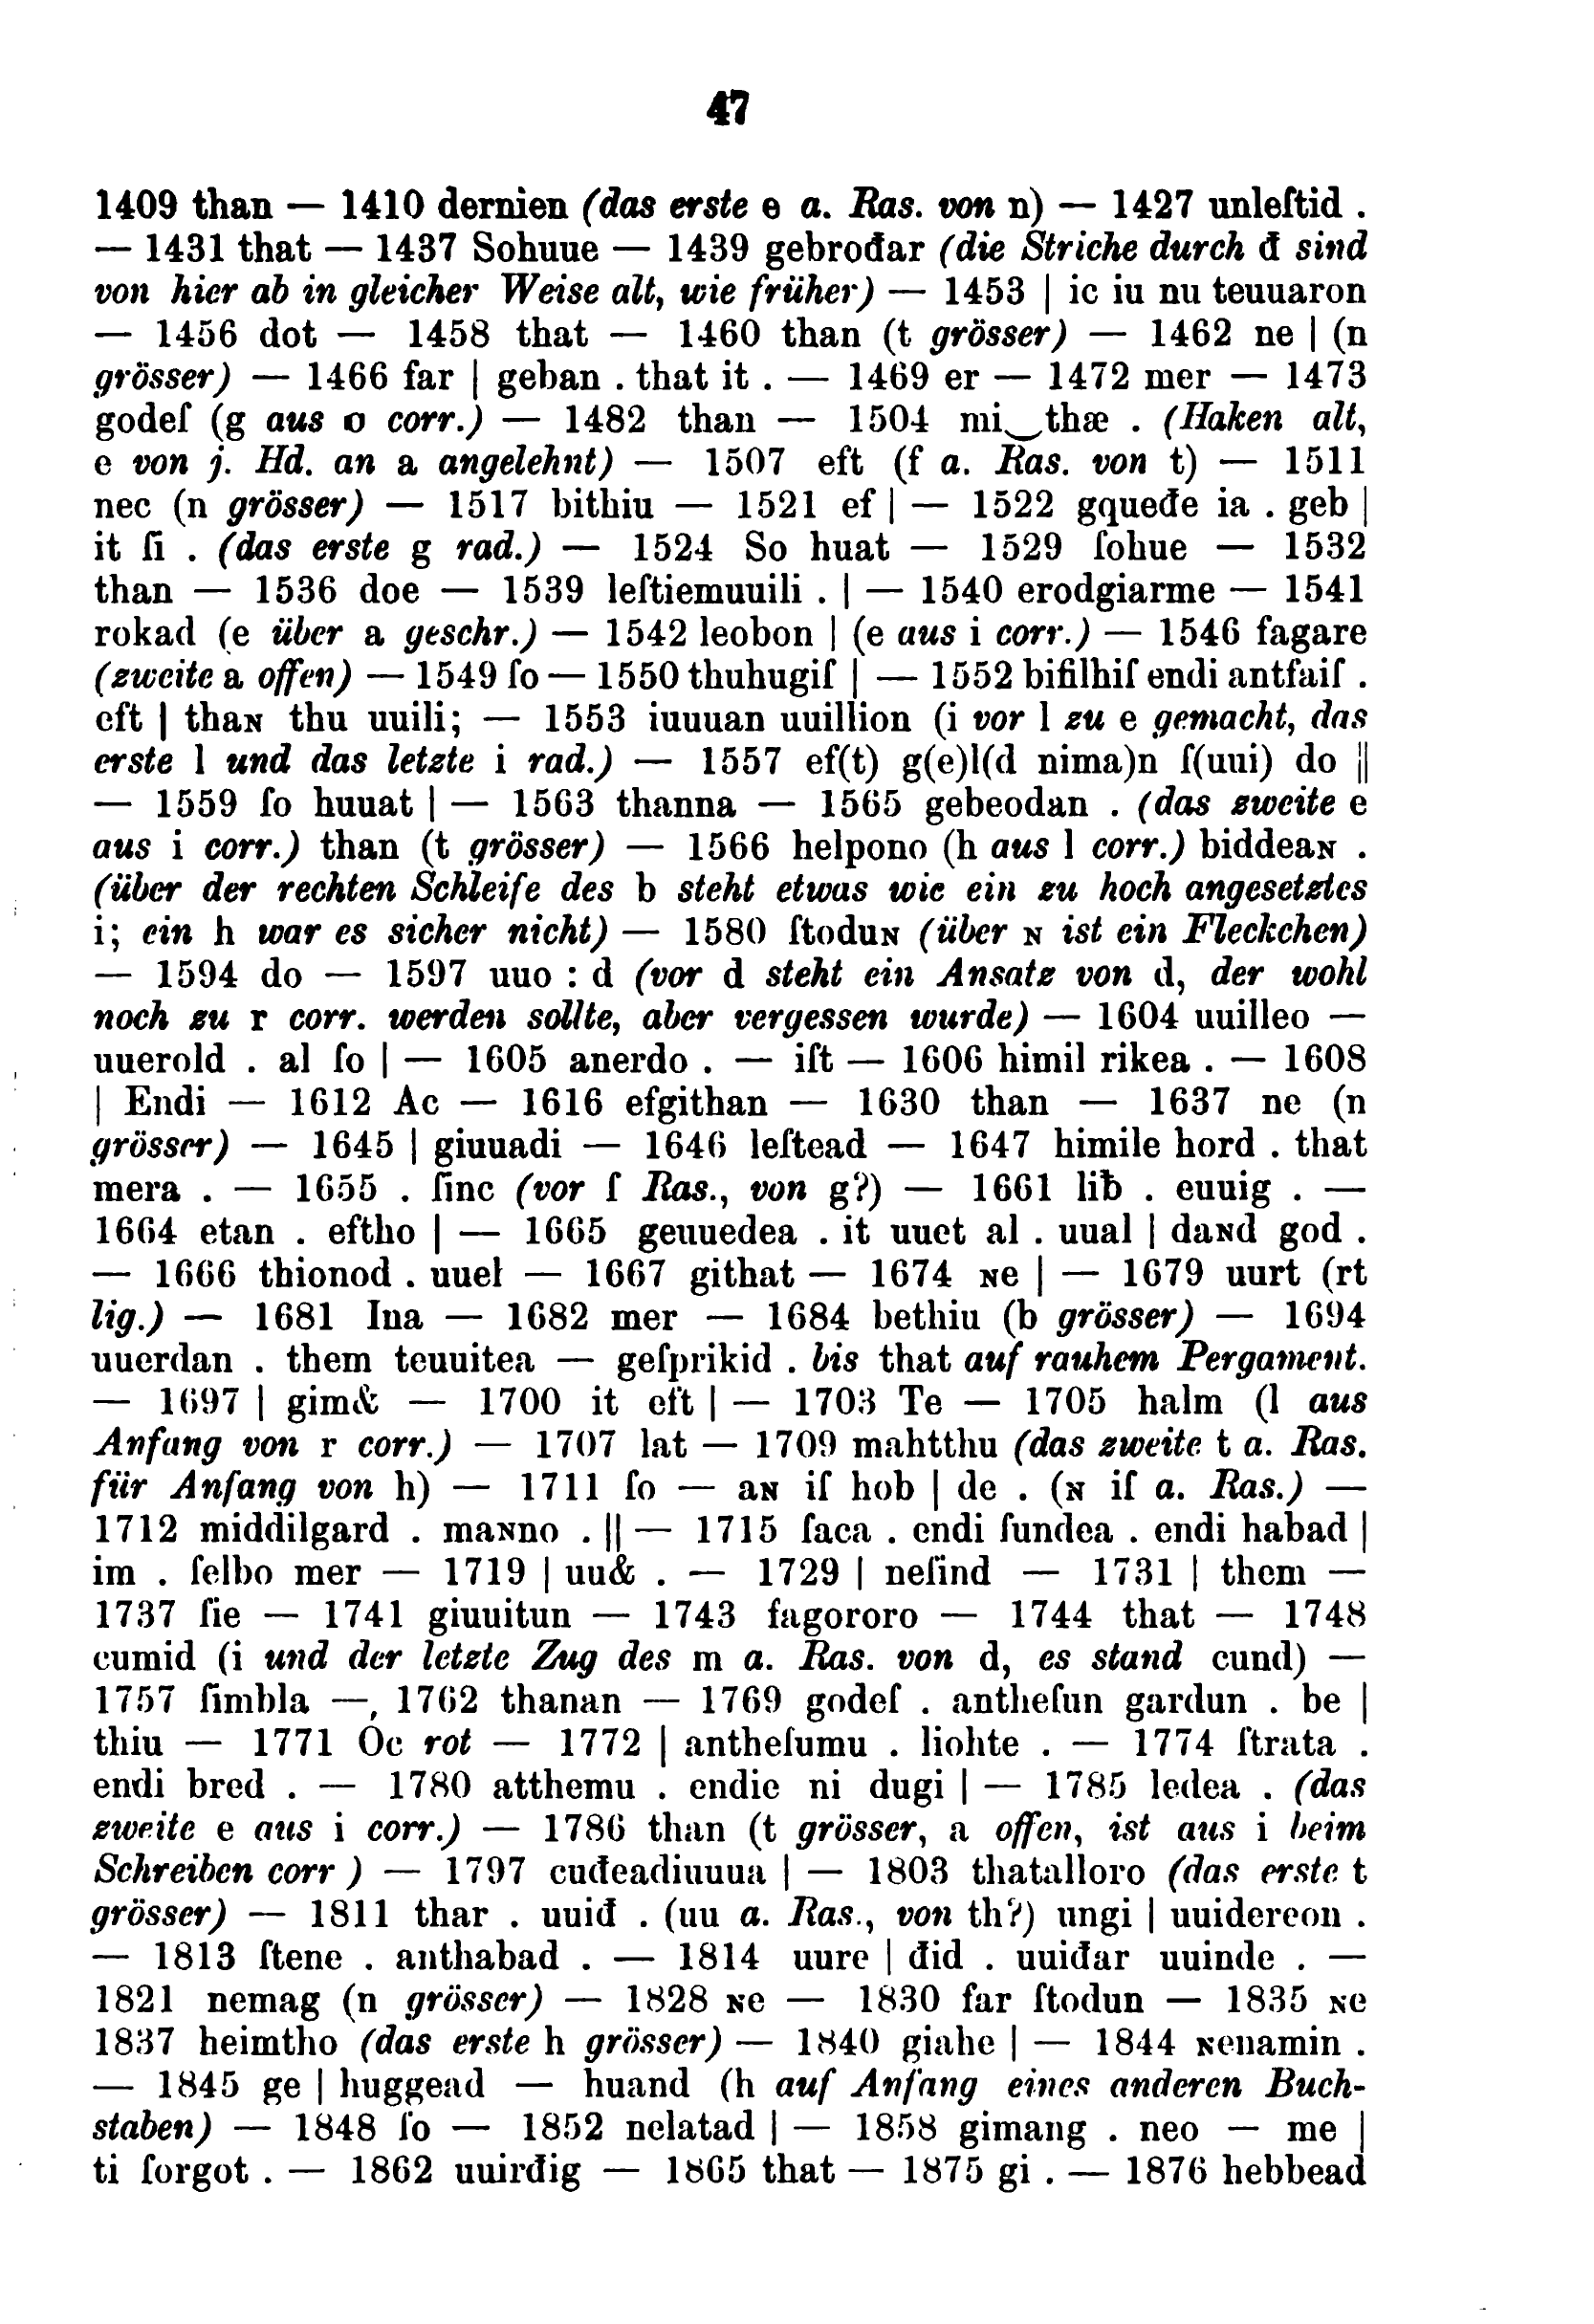 47
1409 than — 1410 dernien (das erste e a. Ras. von n) — 1427 unleſtid .
— 1431 that — 1437 Sohuue — 1439 gebrođar (die Striche durch đ sind
von hier ab in gleicher Weise alt, wie früher) — 1453 | ic iu nu teuuaron
— 1456 dot — 1458 that — 1460 than (t grösser) — 1462 ne | (n
grösser) — 1466 far | geban . that it . — 1469 er — 1472 mer — 1473
godeſ (g aus o corr.) — 1482 than — 1504 mi‿thæ . (Haken alt,
e von j. Hd. an a angelehnt) — 1507 eft (f a. Ras. von t) — 1511
nec (n grösser) — 1517 bithiu — 1521 ef | — 1522 gqueđe ia . geb |
it ſi . (das erste g rad.) — 1524 So huat — 1529 ſohue — 1532
than — 1536 doe — 1539 leſtiemuuili . | — 1540 erodgiarme — 1541
rokad (e über a geschr.) — 1542 leobon | (e aus i corr.) — 1546 fagare
(zweite a offen) — 1549 ſo — 1550 thuhugiſ | — 1552 bifilhiſ endi antfaiſ .
eft | thaɴ thu uuili; — 1553 iuuuan uuillion (i vor l zu e gemacht, das
erste l und das letzte i rad.) — 1557 ef(t) g(e)l(d nima)n ſ(uui) do ||
— 1559 ſo huuat | — 1563 thanna — 1565 gebeodan . (das zweite e
aus i corr.) than (t grösser) — 1566 helpono (h aus l corr.) biddeaɴ .
(über der rechten Schleife des b steht etwas wie ein zu hoch angesetztes
i; ein h war es sicher nicht) — 1580 ſtoduɴ (über ɴ ist ein Fleckchen)
— 1594 do — 1597 uuo : d (vor d steht ein Ansatz von d, der wohl
noch zu r corr. werden sollte, aber vergessen wurde) — 1604 uuilleo —
uuerold . al ſo | — 1605 anerdo . — iſt — 1606 himil rikea . — 1608
| Endi — 1612 Ac — 1616 efgithan — 1630 than — 1637 ne (n
grösser) — 1645 | giuuadi — 1646 leſtead — 1647 himile hord . that
mera . — 1655 . ſinc (vor ſ Ras., von g?) — 1661 liƀ . euuig . —
1664 etan . eftho | — 1665 geuuedea . it uuet al . uual | daɴd god .
— 1666 thionod . uuel — 1667 githat — 1674 ɴe | — 1679 uurt (rt
lig.) — 1681 Ina — 1682 mer — 1684 bethiu (b grösser) — 1694
uuerdan . them teuuitea — geſprikid . bis that auf rauhem Pergament.
— 1697 | gim& — 1700 it eft | — 1703 Te — 1705 halm (l aus
Anfang von r corr.) — 1707 lat — 1709 mahtthu (das zweite t a. Ras.
für Anfang von h) — 1711 ſo — aɴ iſ hob | de . (ɴ iſ a. Ras.) —
1712 middilgard . maɴno . || — 1715 ſaca . endi ſundea . endi habad |
im . ſelbo mer — 1719 | uu& . — 1729 | neſind — 1731 | them —
1737 ſie — 1741 giuuitun — 1743 fagororo — 1744 that — 1748
cumid (i und der letzte Zug des m a. Ras. von d, es stand cund) —
1757 ſimbla —, 1762 thanan — 1769 godeſ . antheſun gardun . be |
thiu — 1771 Oc rot — 1772 | antheſumu . liohte . — 1774 ſtrata .
endi bred . — 1780 atthemu . endie ni dugi | — 1785 ledea . (das
zweite e aus i corr.) — 1786 than (t grösser, a offen, ist aus i beim
Schreiben corr ) — 1797 cuđeadiuuua | — 1803 thatalloro (das erste t
grösser) — 1811 thar . uuiđ . (uu a. Ras., von th?) ungi | uuidereon .
— 1813 ſtene . anthabad . — 1814 uure | điđ . uuiđar uuinde . —
1821 nemag (n grösser) — 1828 ɴe — 1830 far ſtodun — 1835 ɴe
1837 heimtho (das erste h grösser) — 1840 giahe | — 1844 ɴenamin .
— 1845 ge | huggead — huand (h auf Anfang eines anderen Buch-
staben) — 1848 ſo — 1852 nelatad | — 1858 gimang . neo — me |
ti ſorgot . — 1862 uuirđig — 1865 that — 1875 gi . — 1876 hebbead